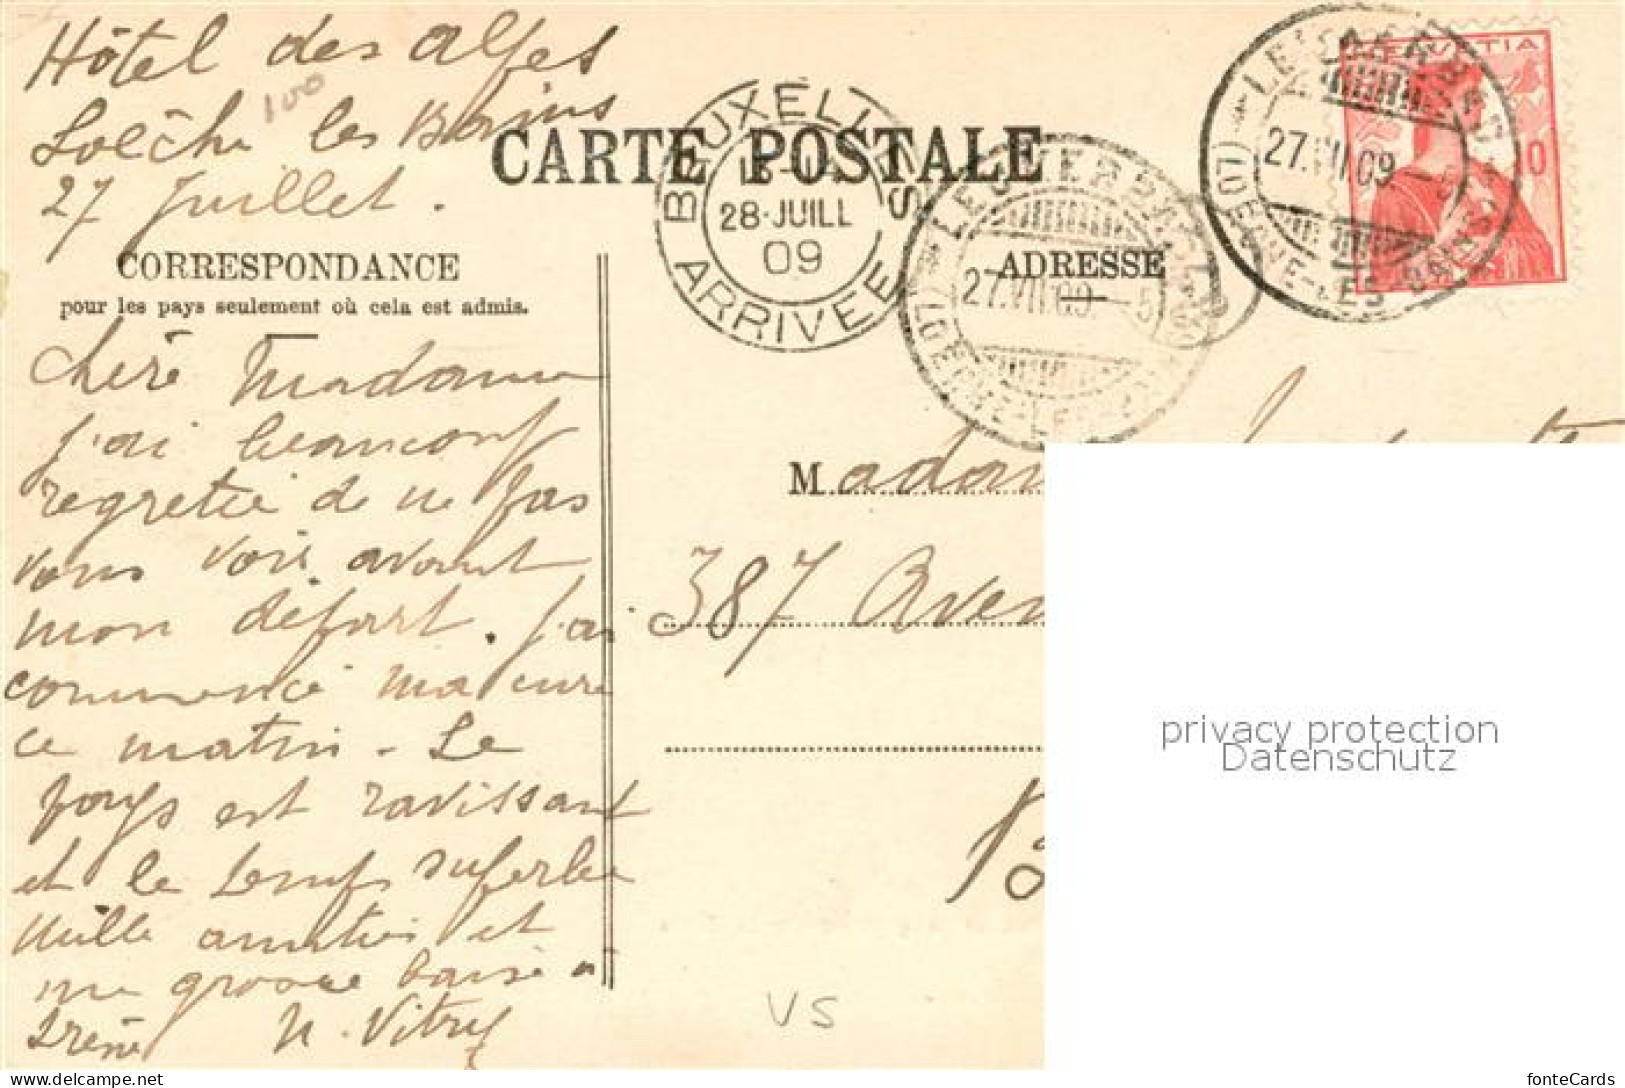 Hôtel des Alpes
100
Loêche les Bains
27 Juillet.
CARTE POSTALE
BRUXELLES
28·JUILL
09
ARRIVEE
LEUKERBAD
27.VII.09.-5
(LOÈCHE-LES-BAINS)
HELVETIA
10
LEUKERBAD
27.VII.09.-5
(LOÈCHE-LES-BAINS)
CORRESPONDANCE
pour les pays seulement où cela est admis.
ADRESSE
Chère Madame
j'ai beaucoup
regretté de ne pas
vous voir avant
mon départ. j'ai
commencé ma cure
ce matin - Le
pays est ravissant
et le temps superbe
Mille amitiés et
une grosse baise à
Irène N. Vitry
Madam
387 Aven
privacy protection
Datenschutz
VS
fonteCards